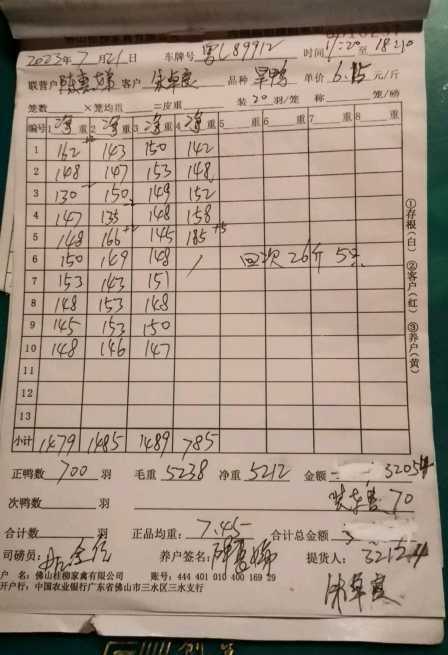 2023年7月21日 车牌号 粤L89912 时间 17:20 至 18:20
联营户 客户 品种 旱鸭 单价 6.15 元/斤
笼数 ×笼均重 =皮重 装 20 羽/笼 称 笼/磅
编号 1 净 重 2 净 重 3 净 重 4 净 重 5 重 6 重 7 重 8 重
1 162 143 150 142
2 148 147 153 148
3 130 150 149 152
4 147 135 148 158
5 148 166 145 185
6 150 149 148 / 回次26斤 5只
7 153 143 151
8 148 153 148
9 145 153 150
10 148 146 147
11
12
13
小计 1479 1485 1489 785
①存根(白) ②客户(红) ③养户(黄)
正鸭数 700 羽 毛重 5238 净重 5212 金额 32054
次鸭数 羽 70
合计数 羽 正品均重: 7.45 合计总金额 32124
司磅员: 养户签名: 提货人:
户 名: 佛山桂柳家禽有限公司 账号: 444 401 010 400 169 29
开户行: 中国农业银行广东省佛山市三水区三水支行